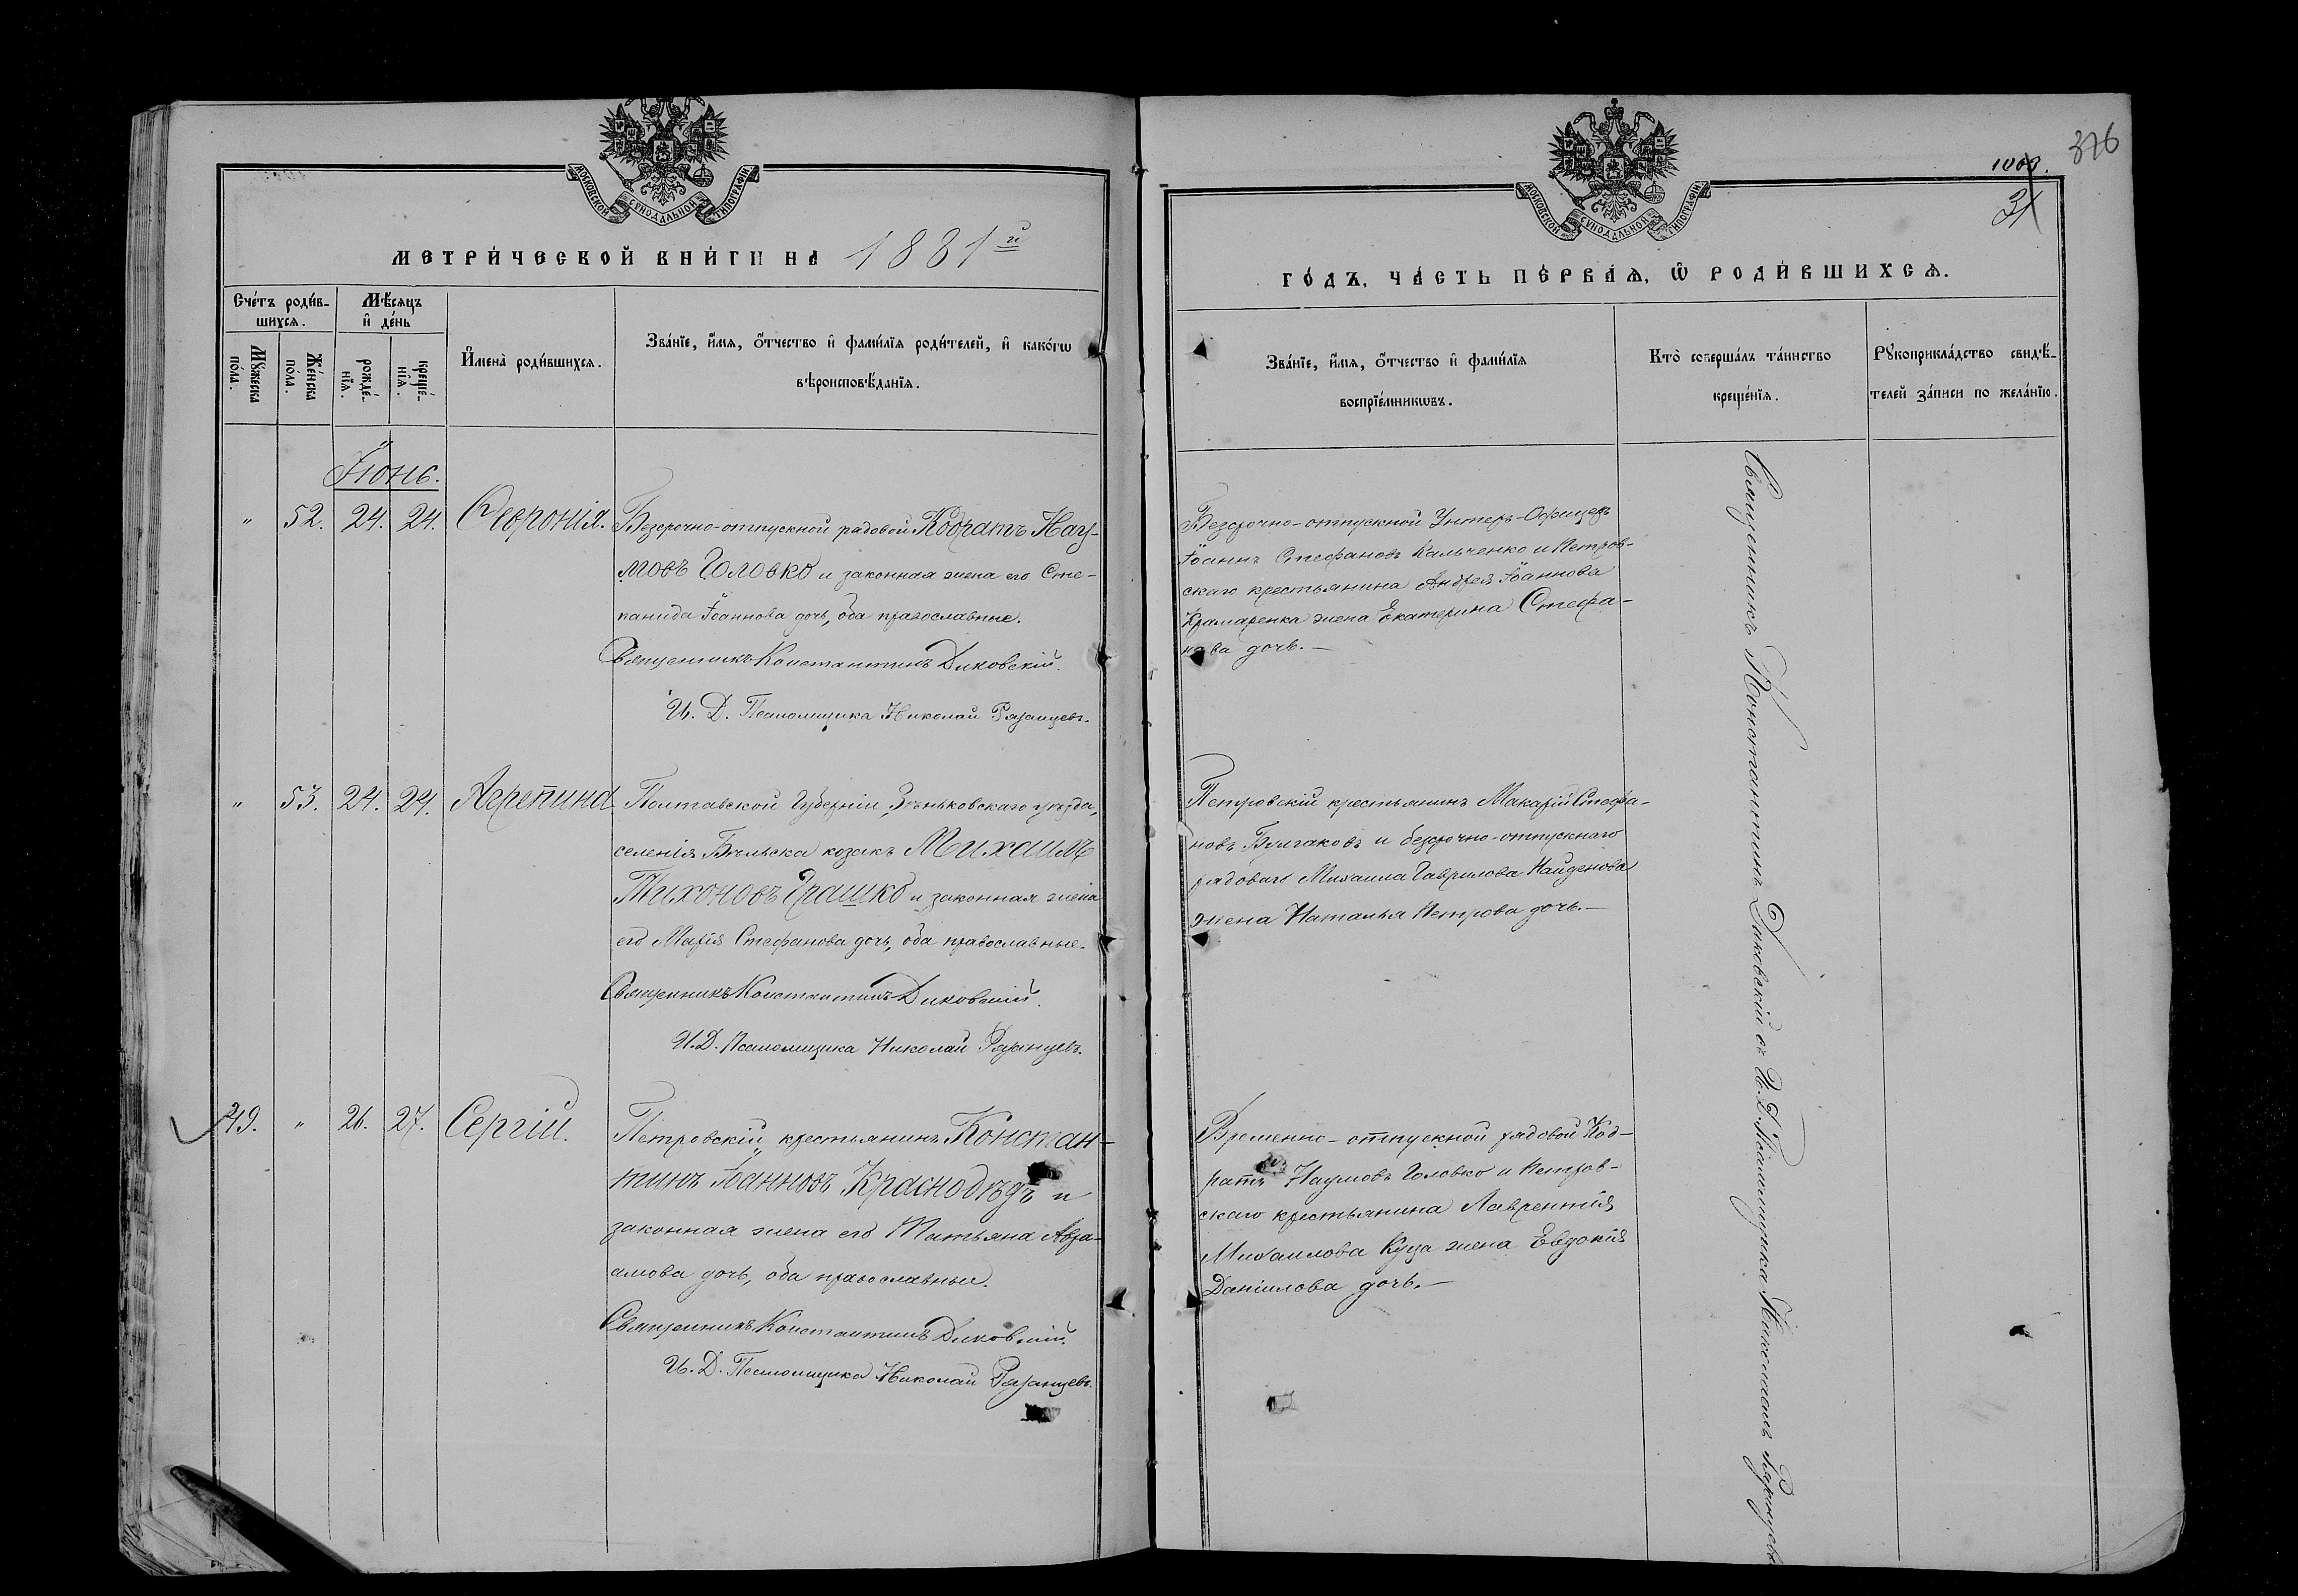 МОСКОВСКОЙ СѴНОДАЛЬНОЙ ТИПОГРАФІИ
МЕТРИ́ЧЕСКОЙ КНИ́ГИ НА 1881й
Сче́тъ роди́в-
шихсѧ.
Мѣ́сѧцъ
и҆ де́нь
Мꙋ́жеска
по́ла.
Же́нска
по́ла.
рожде́-
нїѧ.
креще́-
нїѧ.
И҆мена̀ роди́вшихсѧ.
Зва́нїе, и҆́мѧ, ѻ҆́тчество и҆ фами́лїѧ роди́телей, и҆ како́гѡ
вѣроисповѣ́данїѧ.
Іюнь.
" 52. 24. 24. Февронія.
Безсрочно-отпускной рядовой Кодратъ Нау-
мовъ Головко и законная жена его Сте-
панида Іоаннова дочь, оба православные.
Священникъ Константинъ Диковскій.
И. Д. Псаломщика Николай Рязанцевъ.
" 53. 24. 24. Агрепина
Полтавской Губерніи, Зѣньковскаго уѣзда,
селенія Бѣльска козакъ Михаилъ
Тихоновъ Грашко и законная жена
его Марія Стефанова дочь, оба православные.
Священникъ Константинъ Диковскій.
И. Д. Псаломщика Николай Рязанцевъ.
49. " 26. 27. Сергій.
Петровскій крестьянинъ Констан-
тинъ Іоанновъ Краснодѣдъ и
законная жена его Татьяна Авра-
амова дочь, оба православные.
Священникъ Константинъ Диковскій.
И. Д. Псаломщика Николай Рязанцевъ.
376
31
МОСКОВСКОЙ СѴНОДАЛЬНОЙ ТИПОГРАФІИ
ГО́ДЪ, ЧА́СТЬ ПЕ́РВАѦ, Ѿ РОДИ́ВШИХСѦ.
Зва́нїе, и҆́мѧ, ѻ҆́тчество и҆ фами́лїѧ
воспрїе́мникѡвъ.
Кто̀ соверша́лъ та́инство
креще́нїѧ.
Рꙋкоприкла́дство свидѣ́-
телей за́писи по жела́нїю.
Безсрочно-отпускной Унтеръ-Офицеръ
Іоаннъ Стефановъ Кальченко и Петров-
скаго крестьянина Андрея Іоаннова
Крамаренка жена Екатерина Стефа-
нова дочь.—
Петровскій крестьянинъ Макарій Стефа-
новъ Булгаковъ и безсрочно-отпускнаго
рядоваго Михаила Гаврилова Найденова
жена Наталья Петрова дочь.—
Временно-отпускной рядовой Код-
ратъ Наумовъ Головко и Петров-
скаго крестьянина Лаврентія
Михаилова Куца жена Евдокія
Даніилова дочь.—
Священникъ Константинъ Диковскій съ И. Д. Псаломщика Николаемъ Рязанцевымъ